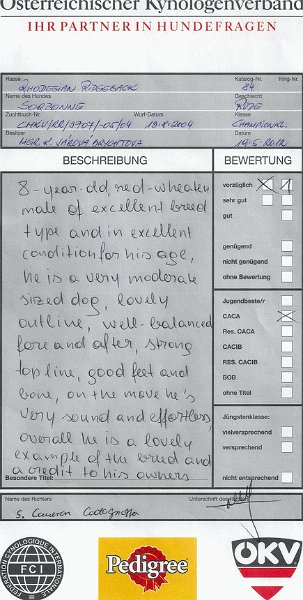 Österreichischer Kynologenverband
IHR PARTNER IN HUNDEFRAGEN
Rasse Katalog-Nr. Ring-Nr.
RHODESIAN RIDGEBACK 84
Name des Hundes Geschlecht
SORBONNE RÜDE
Zuchtbuch-Nr. Wurf-Datum Klasse
19.8.2004 CHAMPIONKL.
Besitzer Datum
19.5.2012
BESCHREIBUNG BEWERTUNG
8-year-old, red-wheaten
male of excellent breed
type and in excellent
condition for his age,
he is a very moderate
sized dog, lovely
outline, well-balanced
fore and after, strong
top line, good feet and
bone, on the move he's
very sound and effortless,
overall he is a lovely
example of the breed and
a credit to his owners
Besondere Titel:
vorzüglich X 1
sehr gut
gut
genügend
nicht genügend
ohne Bewertung
Jugendbeste/r
CACA X
Res. CACA
CACIB
RES. CACIB
BOB
ohne Titel
Jüngstenklasse:
vielversprechend
versprechend
nicht entsprechend
Name des Richters Unterschrift des
S. Cameron
FEDERATION CYNOLOGIQUE INTERNATIONALE
FCI
Pedigree
ÖKV